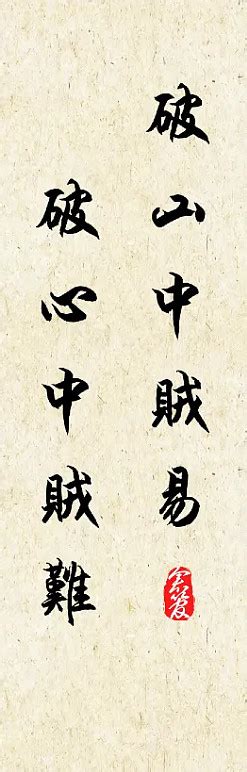 破山中賊易
破心中賊難